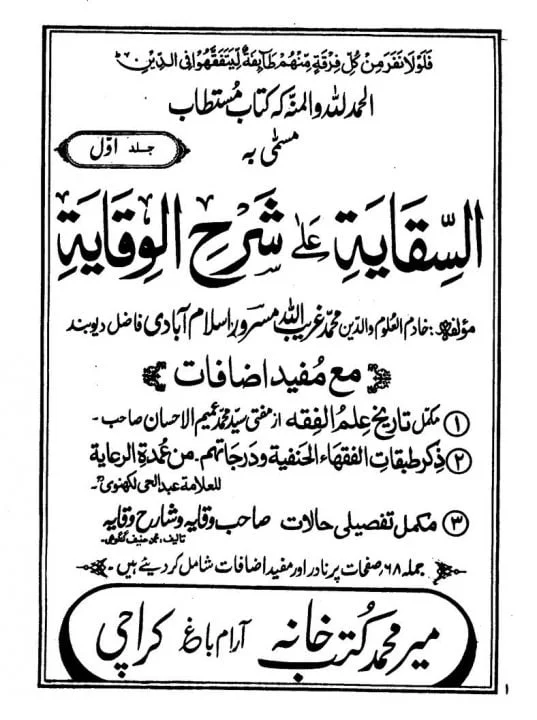 فَلَوْلَا نَفَرَ مِنْ كُلِّ فِرْقَةٍ مِّنْهُمْ طَآئِفَةٌ لِّيَتَفَقَّهُوْا فِي الدِّيْنِ ط
الحمد للہ والمنّہ کہ کتاب مُستطاب
مسمّٰی بہ
جلد اوّل
السِّقَایَۃِ عَلٰے شَرْحِ الْوِقَایَۃِ
مؤلفہ: خادم العلوم والدین محمّد غریب اللہ مسرور اسلام آبادی فاضل دیوبند
مع مُفید اضافات
① مکمّل تاریخ علمُ الفقه از مفتی سیّد محمّد عمیم الاحسان صاحب۔
② ذکر طبقات الفقهاء الحنفیة ودرجاتهم۔ من عُمدۃ الرعایة
للعلامة عبد الحی لکھنویؒ۔
③ مکمل تفصیلی حالات صاحب وقایہ وشارح وقایہ
تالیف: محمد حنیف گنگوہی۔
جملہ ۶۸ صفحات پر نادر اور مفید اضافات شامل کر دیئے ہیں۔
میر محمد کُتب خانہ آرام باغ کراچی
۱